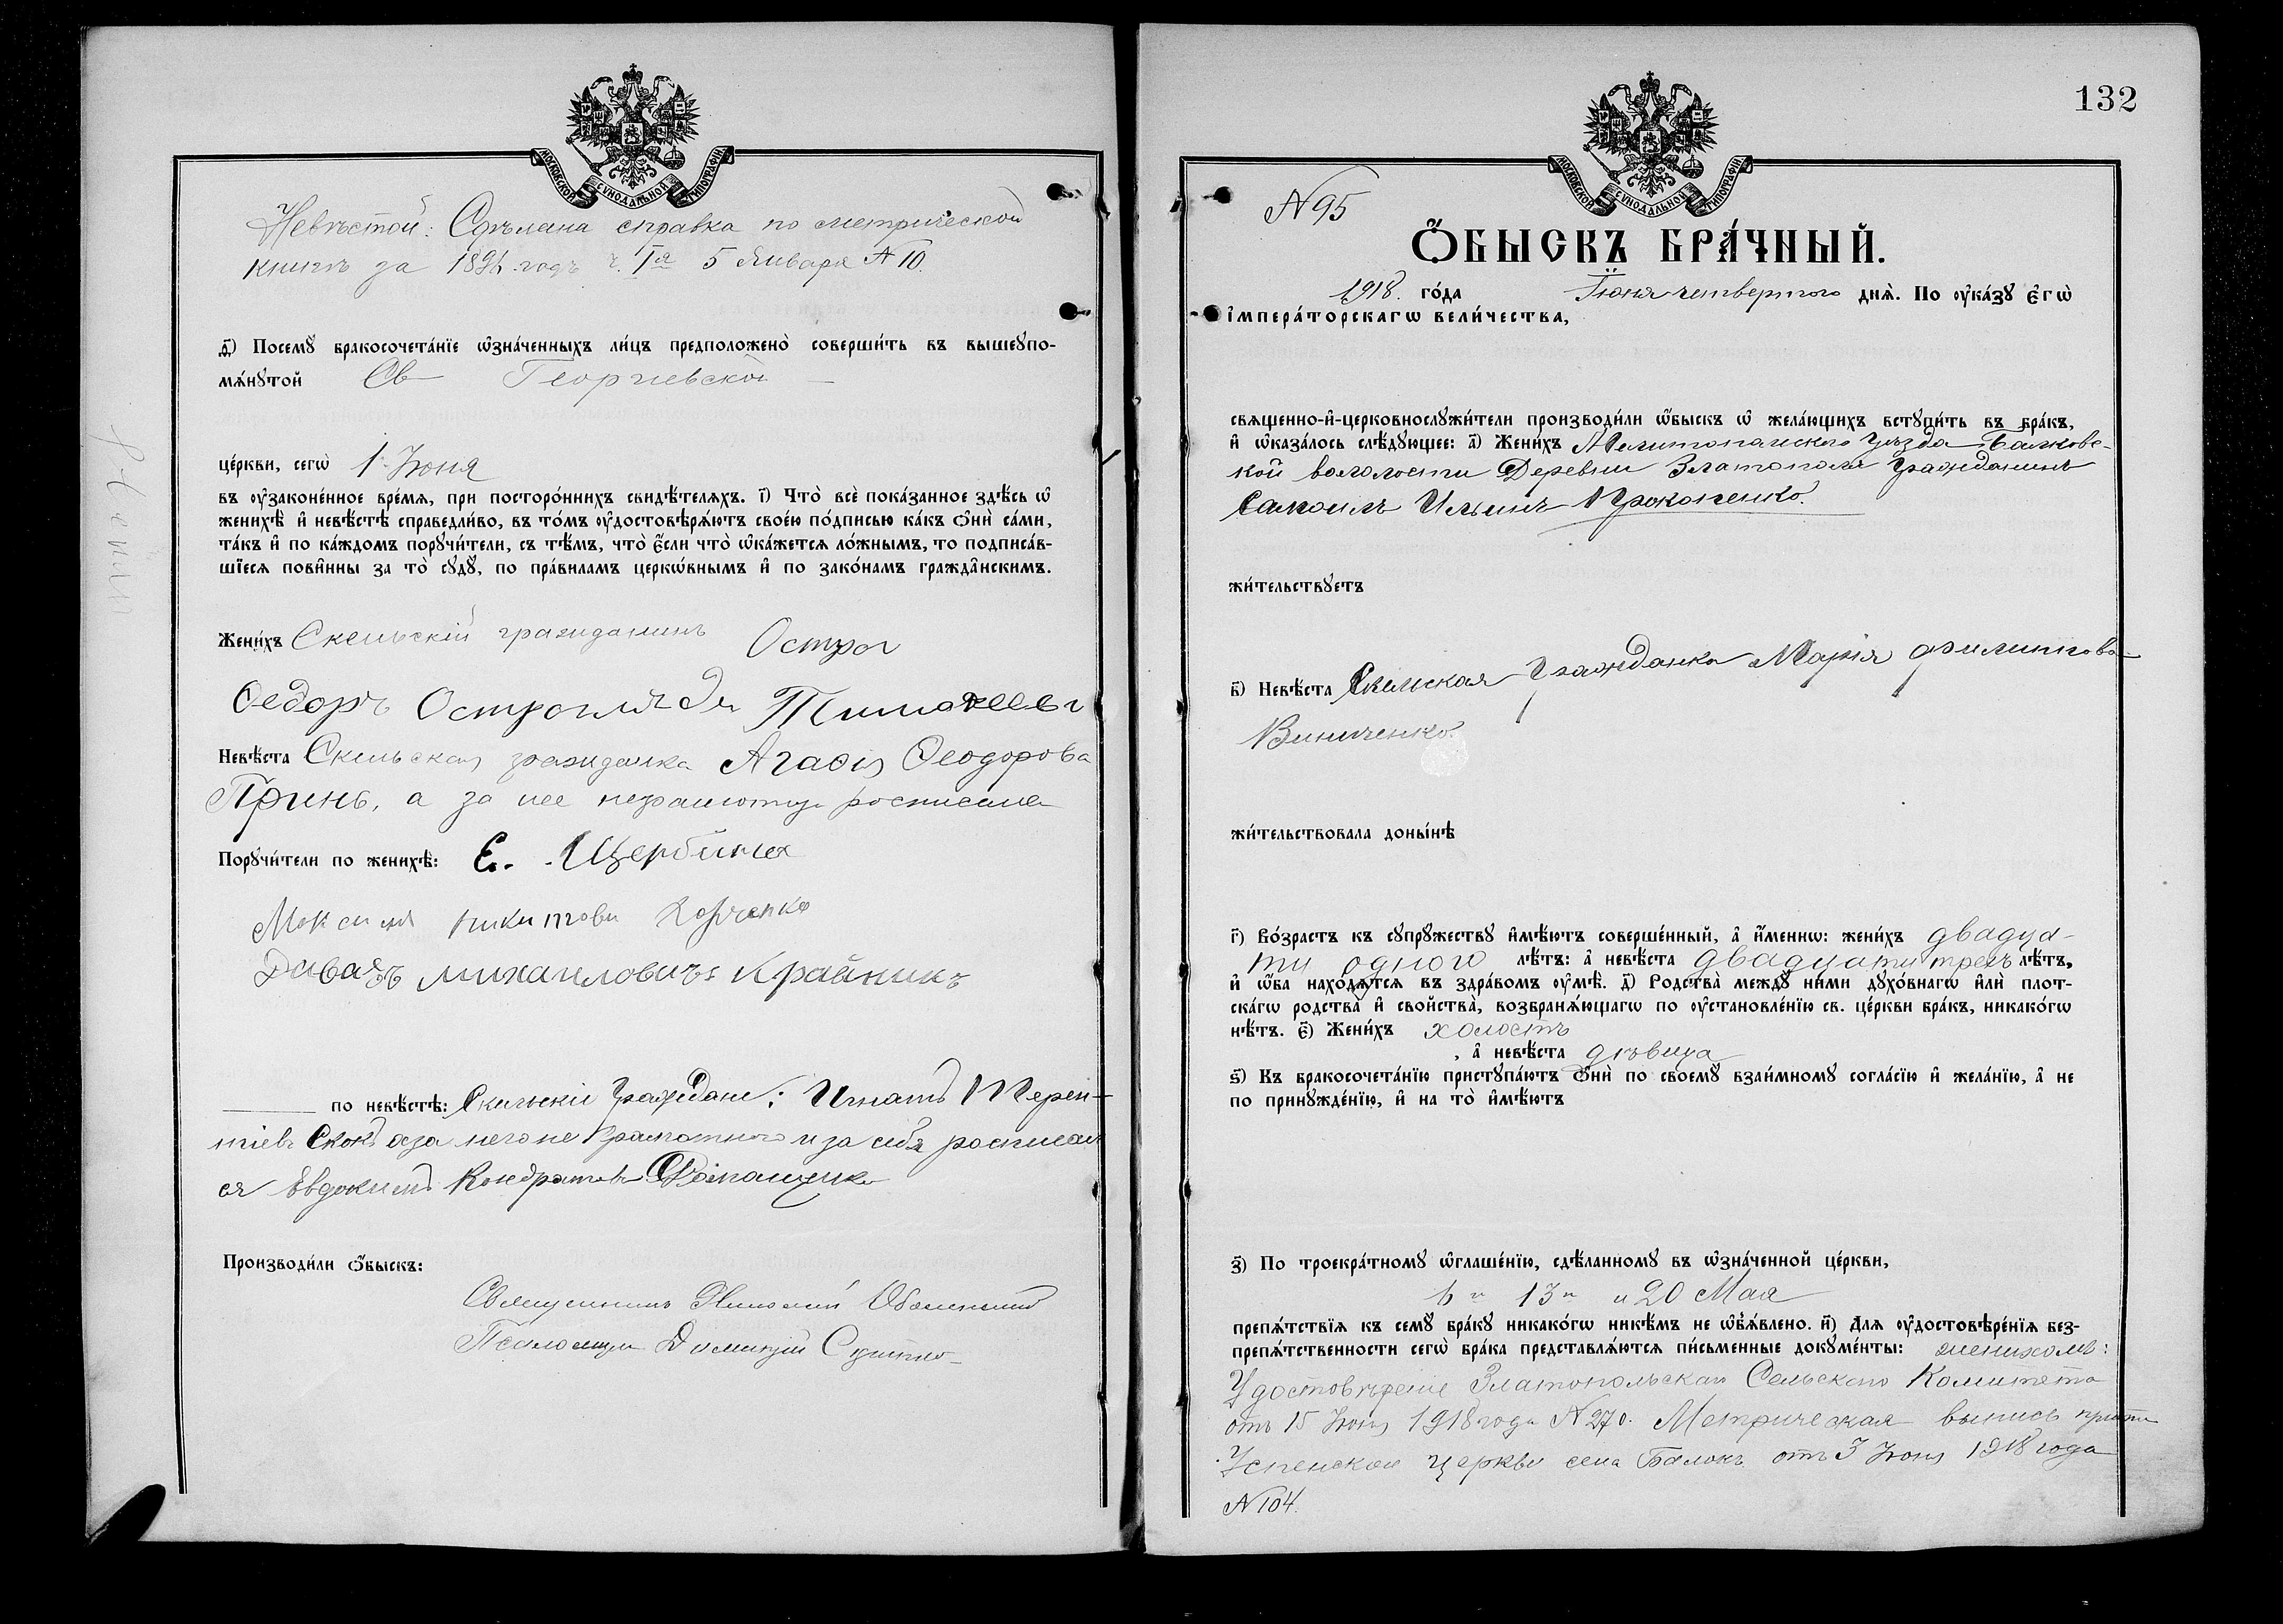 МОСКОВСКОЙ СУНОДАЛЬНОЙ ТИПОГРАФІИ
Невѣстой: Сдѣлана справка по метрической
книгѣ за 189 годъ ч. Iя 5 Января № 10.
д҃і) Посемꙋ бракосочета́нїе ѡ҆зна́ченныхъ ли́цъ предположено̀ соверши́ть въ вышеꙋпо-
мѧ́нꙋтой Св Георгіевской
це́ркви, сегѡ̀ 1 Іюня
въ ᲂу҆законе́нное вре́мѧ, при посторо́ннихъ свидѣ́телѧхъ. і҃) Что̀ всѐ пока́занное здѣ́сь ѡ҆
женихѣ̀ и҆ невѣ́стѣ справедли́во, въ то́мъ ᲂу҆достовѣрѧ́ютъ свое́ю по́дписью ка́къ ѻ҆нѝ са́ми,
та́къ и҆ по ка́ждомъ порꙋчи́тели, съ тѣ́мъ, что̀ є҆́сли что̀ ѡ҆ка́жетсѧ ло́жнымъ, то подписа́в-
шїесѧ пови́нны за то̀ сꙋдꙋ̀, по пра́виламъ церкѡ́внымъ и҆ по зако́намъ гражда̂нскимъ.
Жени́хъ Скельскій гражданинъ Острог
Ѳедоръ Тимоѳеевъ
Невѣ́ста Скельская гражданка Агаѳія Ѳеодорова
Принь, а за нее неграмотную росписался
Порꙋчи́тели по женихѣ̀: Е. Щербина
Максимъ Никитовъ
Давидъ Михаиловичъ Крайникъ
по невѣ́стѣ: Скельскіе Граждане: Игнатъ Терен-
тіевъ Скокъ а за него не грамотного и за себя росписал
ся Евдокимъ Кондратовъ
Производи́ли ѻ҆́быскъ:
Священникъ Николай Оболенскій
Псаломщикъ Димитрій
132
МОСКОВСКОЙ СУНОДАЛЬНОЙ ТИПОГРАФІИ
№ 95
Ѻ҆́БЫСКЪ БРА́ЧНЫЙ.
1918. го́да Іюня четвертого днѧ̀. По ᲂу҆ка́зꙋ є҆гѡ̀
і҆мпера́торскагѡ вели́чества,
свѧщенно-и҆-церковнослꙋжи́тели производи́ли ѡ҆́быскъ ѡ҆ жела́ющихъ встꙋпи́ть въ бра́къ,
и҆ ѡ҆каза́лось слѣ́дꙋющее: а҃) Жени́хъ Мелитопольского Уѣзда Балковс-
кой вололости Деревни Златополя Гражданинъ
Самоилъ Ильинъ Прокопенко.
жи́тельствꙋетъ
в҃) Невѣ́ста Скельская Гражданка Марія Филиппова
Виниченко.
жи́тельствовала доны́нѣ
г҃) Во́зрастъ къ сꙋпрꙋжествꙋ и҆мѣ́ютъ соверше́нный, а҆ и҆́меннѡ: жени́хъ двадца-
ти одного лѣ́тъ: а҆ невѣ́ста двадцати трехъ лѣ́тъ,
и҆ ѡ҆́ба нахо́дѧтсѧ въ здра́вомъ ᲂу҆мѣ̀. д҃) Родства̀ междꙋ̀ ни́ми дꙋхо́внагѡ и҆лѝ плот-
ска́гѡ родства̀ и҆ сво́йства̀, возбранѧ́ющагѡ по ᲂу҆становле́нїю св. це́ркви бра́къ, никако́гѡ
нѣ́тъ. є҃) Жени́хъ холостъ
, а҆ невѣ́ста дѣвица
ѕ҃) Къ бракосочета́нїю пристꙋпа́ютъ ѻ҆нѝ по своемꙋ̀ взаи́мномꙋ согла́сїю и҆ жела́нїю, а҆ не
по принꙋжде́нїю, и҆ на то̀ и҆мѣ́ютъ
з҃) По троекра́тномꙋ ѡ҆глаше́нїю, сдѣ́ланномꙋ въ ѡ҆зна́ченной це́ркви,
6го 13го и 20 Мая
препѧ́тствїѧ къ семꙋ̀ бра́кꙋ никако́гѡ никѣ́мъ не ѡ҆б̾ѧ́влено. и҃) Длѧ ᲂу҆достовѣре́нїѧ без-
препѧ́тственности сегѡ̀ бра́ка представлѧ́ютсѧ пи́сьменные докꙋме́нты: женихомъ:
Удостовѣреніе Златопольскаго Сельскаго Комитета
отъ 15 Іюня 1918 года № 270. Метрическая выпись причта
Успенской церкви села Балокъ отъ 3 Іюня 1918 года
№ 104.